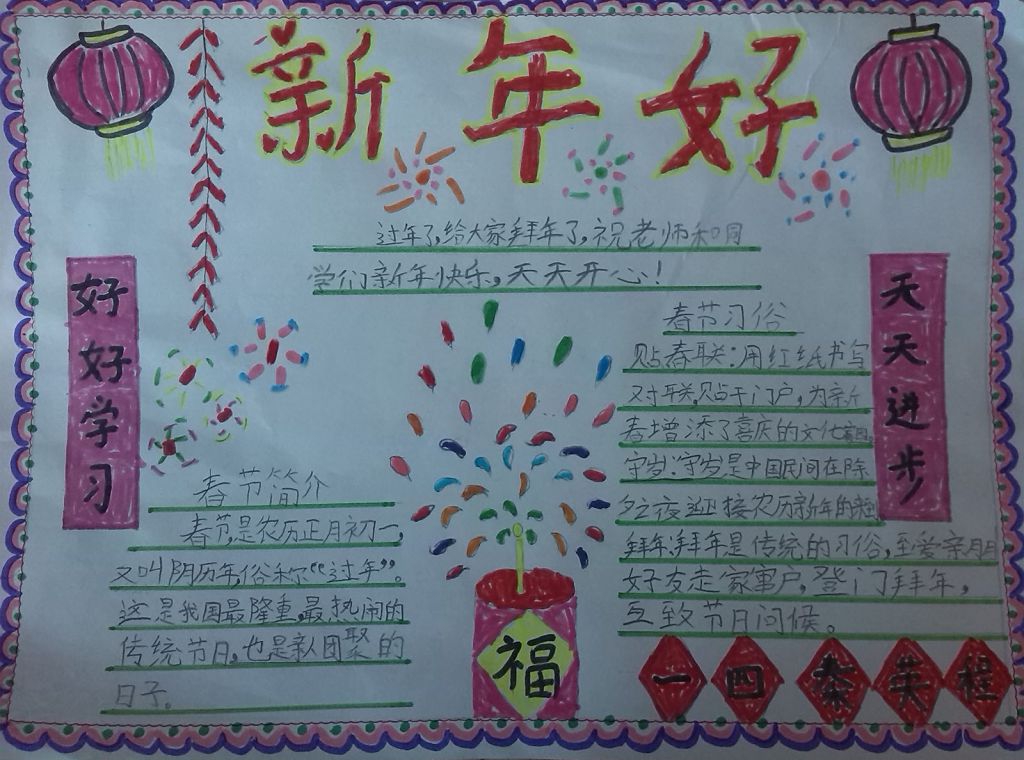 新年好
过年了,给大家拜年了,祝老师和同
学们新年快乐,天天开心!
好好学习
天天进步
春节简介
春节,是农历正月初一,
又叫阴历年,俗称“过年”。
这是我国最隆重,最热闹的
传统节日,也是亲人团聚的
日子。
春节习俗
贴春联:用红纸书写
对联,贴于门户,为新
春增添了喜庆的文化
守岁:守岁是中国民间在除
夕之夜迎接农历新年的
拜年:拜年是传统的习俗,至爱亲朋
好友走家串户,登门拜年,
互致节日问候。
福
一四 秦英程